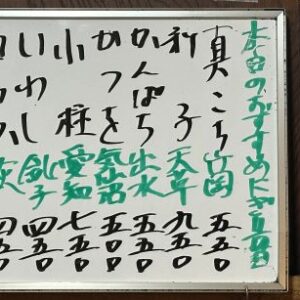 本日のおすすめにぎり
真こち 竹岡 五五〇
新子 天草 九五〇
かんぱち 出水 五五〇
かつを 気仙沼 五五〇
小柱 愛知 七五〇
いわし 銚子 四五〇
四五〇